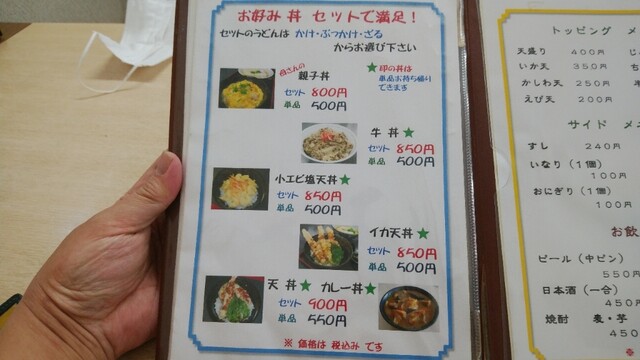 お好み 丼 セットで満足！
セットのうどんは かけ・ぶっかけ・ざる
からお選び下さい
母さんの
親子丼
セット 800円
単品 500円
★印の丼は
単品お持ち帰り
できます
牛 丼★
セット 850円
単品 500円
小エビ塩天丼★
セット 850円
単品 500円
イカ天丼★
セット 850円
単品 500円
天 丼★ カレー丼★
セット 900円
単品 550円
※ 価格は 税込み です
トッピング メ
天盛り 400円
いか天 350円
かしわ天 250円
えび天 200円
サイド メニ
すし 240円
いなり（1個）
100円
おにぎり（1個）
100円
お飲
ビール（中ビン）
550円
日本酒（一合）
450円
焼酎 麦・芋
450